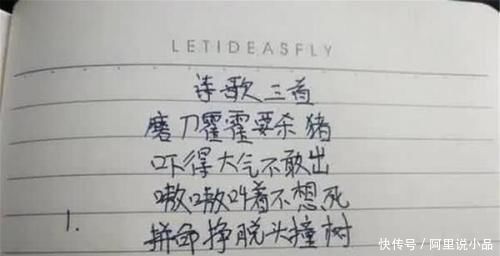 LETIDEASFLY
诗歌三首
磨刀霍霍要杀猪
吓得大气不敢出
嗷嗷叫着不想死
1.
拼命挣脱头撞树
快传号/阿里说小品